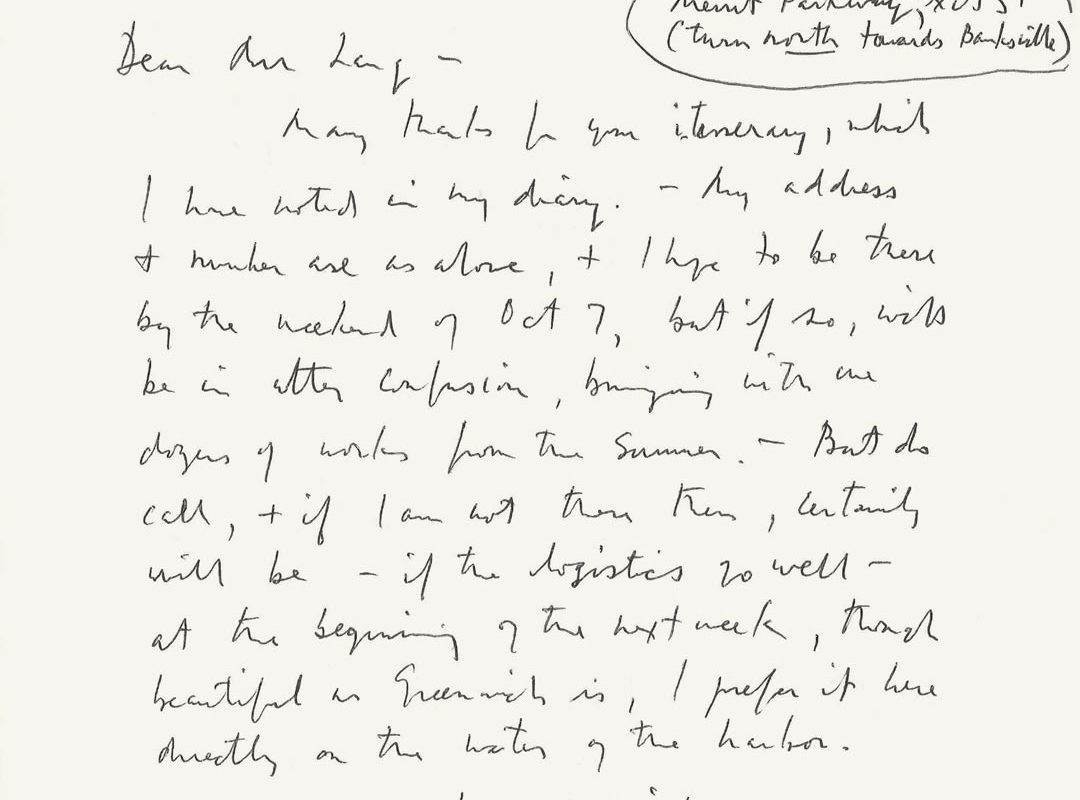 Merritt Parkway,
(turn north towards Banksville)
Dear Mr Lang –
Many thanks for your itinerary, which
I have noted in my diary. – My address
+ number are as above, + I hope to be there
by the weekend of Oct 7, but if so, will
be in utter confusion, bringing with me
dozens of works from the Summer. – But do
call, + if I am not there then, certainly
will be – if the logistics go well –
at the beginning of the next week, though
beautiful as Greenwich is, I prefer it here
directly on the water of the harbor.